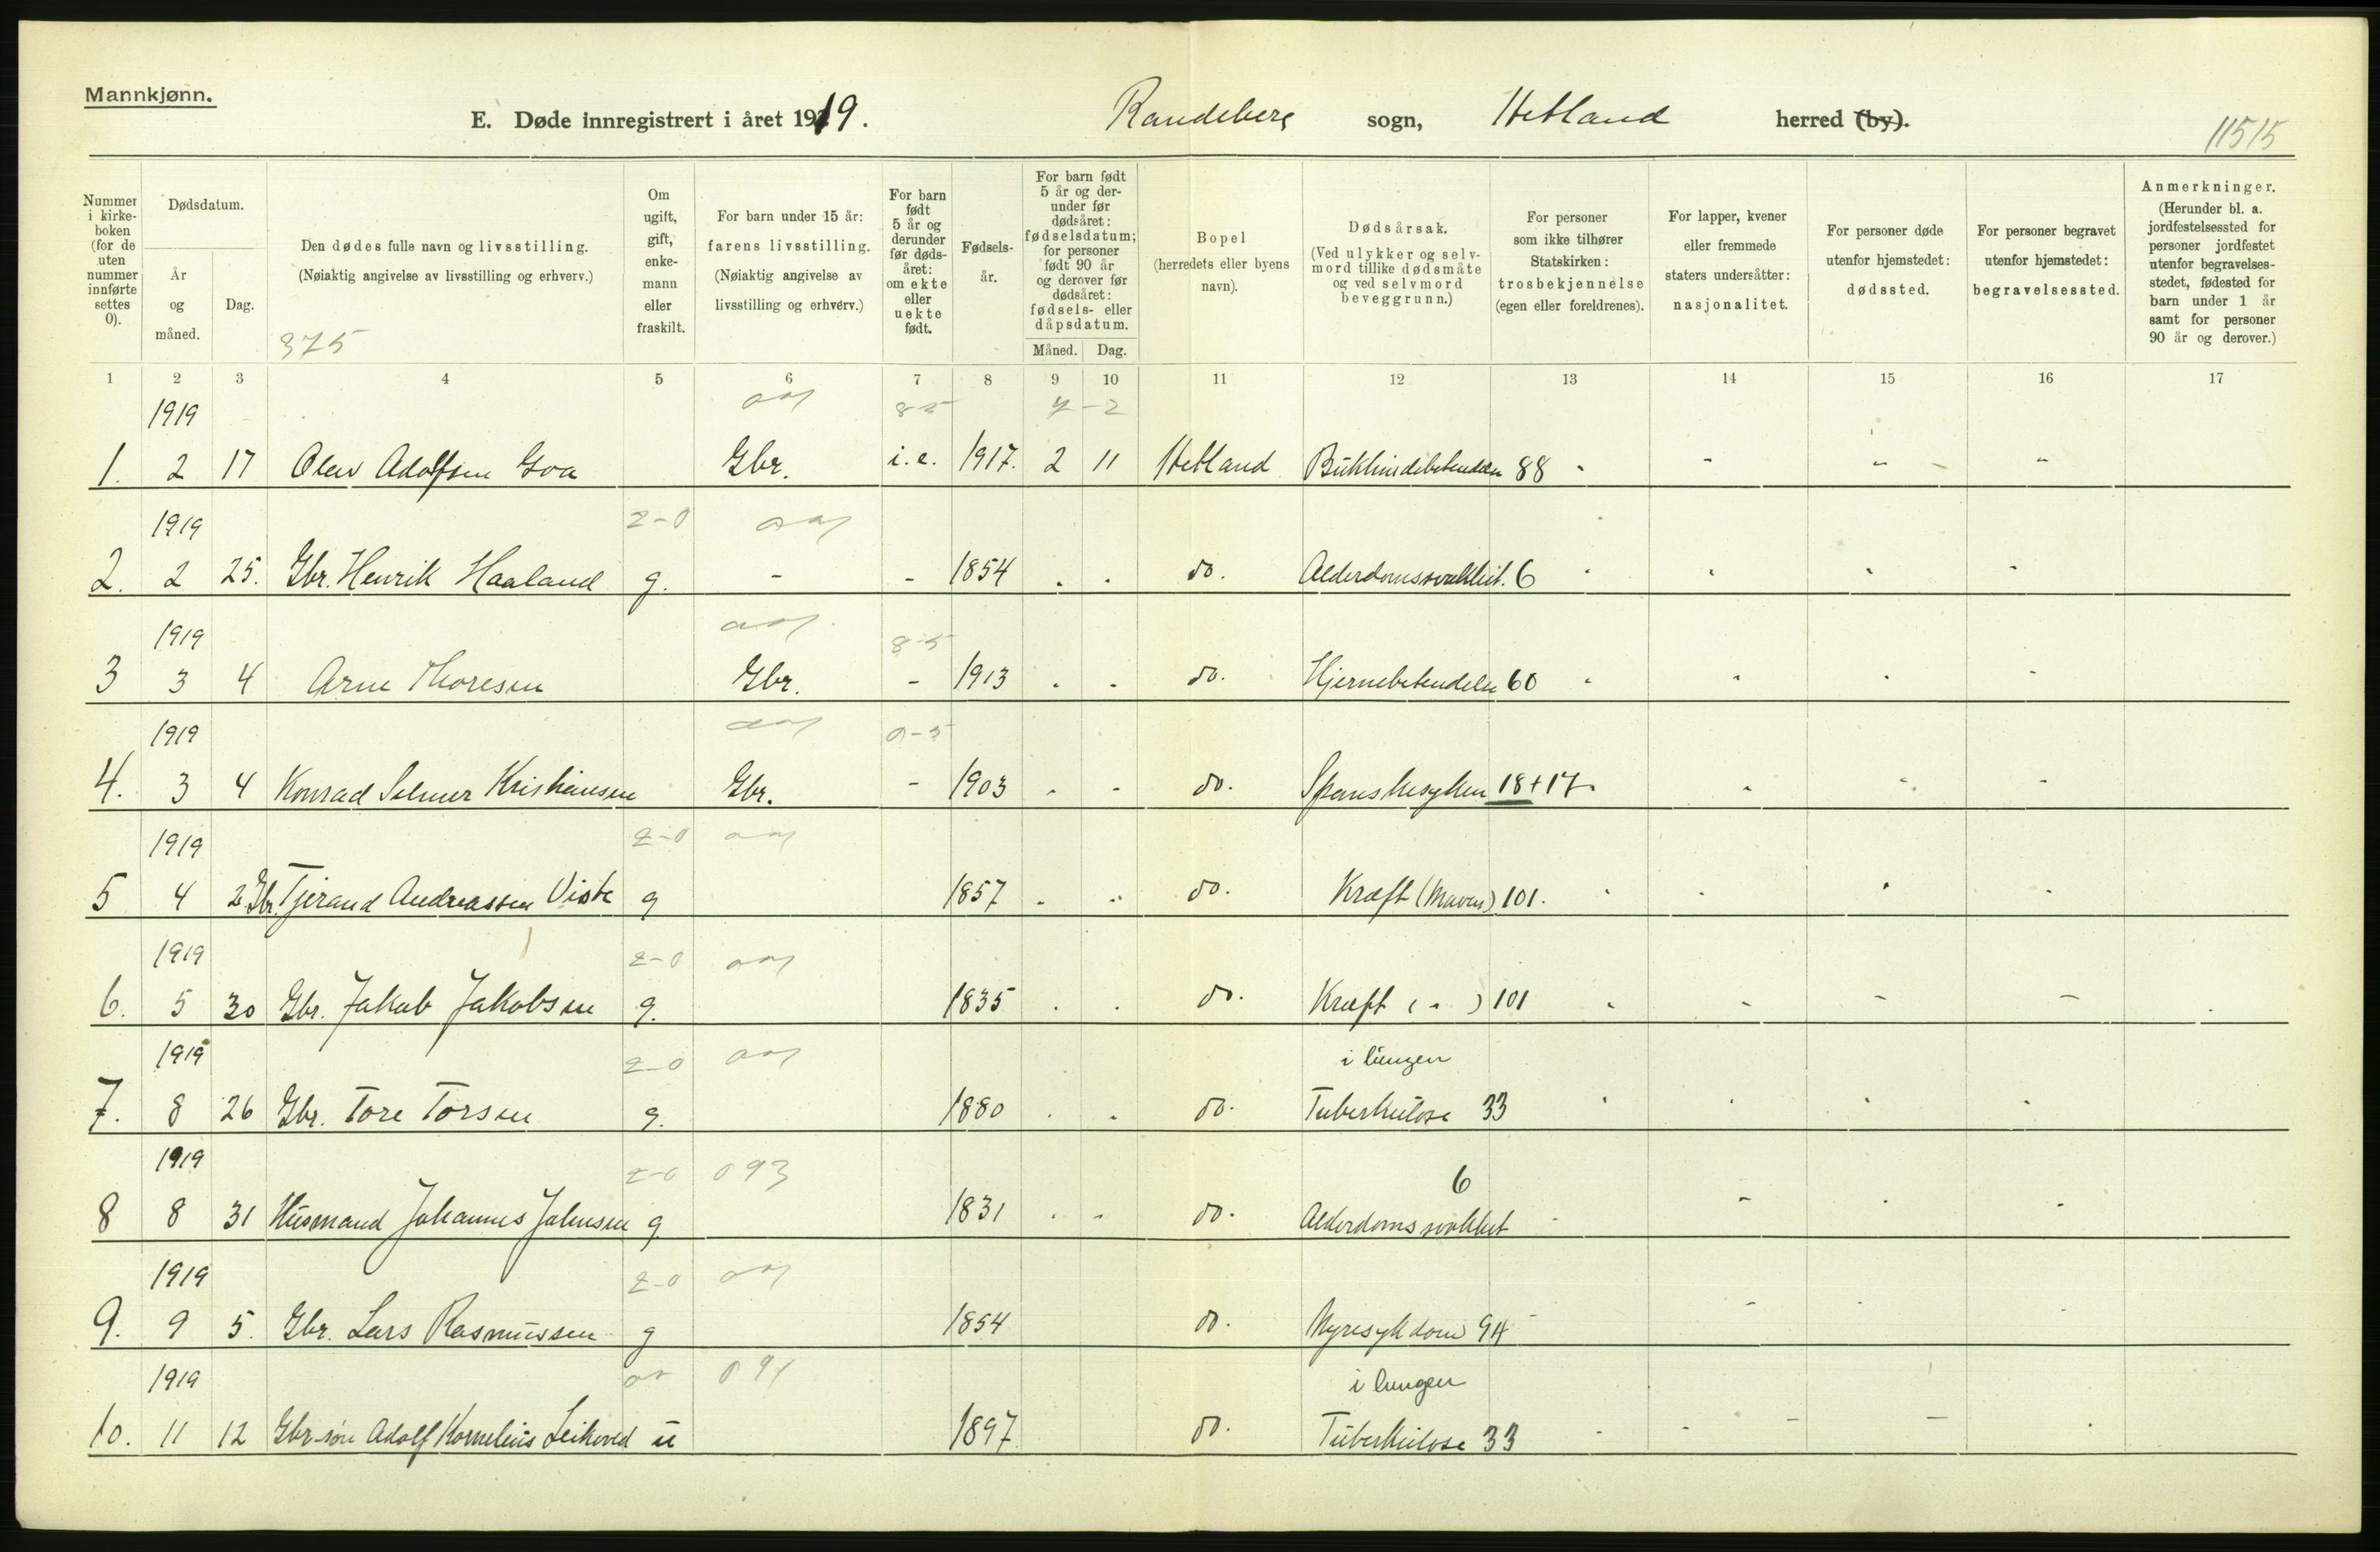 Mannkjønn.
E. Døde innregistrert i året 1919. Randeberg sogn, Hetland herred (by).
11515
Nummer i kirke-boken (for de uten nummer innførte settes 0).
Dødsdatum.
År og måned.
Dag.
Den dødes fulle navn og livsstilling.
(Nøiaktig angivelse av livsstilling og erhverv.)
375
Om ugift, gift, enke-mann eller fraskilt.
For barn under 15 år: farens livsstilling.
(Nøiaktig angivelse av livsstilling og erhverv.)
For barn født 5 år og derunder før døds-året: om ekte eller uekte født.
Fødsels-år.
For barn født 5 år og der-under før dødsåret: fødselsdatum; for personer født 90 år og derover før dødsåret: fødsels- eller dåpsdatum.
Måned. Dag.
Bopel (herredets eller byens navn).
Dødsårsak.
(Ved ulykker og selv-mord tillike dødsmåte og ved selvmord beveggrunn.)
For personer som ikke tilhører Statskirken: trosbekjennelse (egen eller foreldrenes).
For lapper, kvener eller fremmede staters undersåtter: nasjonalitet.
For personer døde utenfor hjemstedet: dødssted.
For personer begravet utenfor hjemstedet: begravelsessted.
Anmerkninger.
(Herunder bl. a. jordfestelsessted for personer jordfestet utenfor begravelses-stedet, fødested for barn under 1 år samt for personer 90 år og derover.)
1 2 3 4 5 6 7 8 9 10 11 12 13 14 15 16 17
1919
1. 2 17 Olav Adolfsen Goa Gbr. i.e. 1917. 2 11 Hetland Bukhindebetendelse 88 - - - -
1919 2-0
2. 2 25. Gbr. Henrik Haaland g. - - 1854 . . do. Alderdomssvakhet. 6
1919 8-5
3 3 4 Arne Thoresen Gbr. - 1913 . . do. Hjernebetendelse 60
1919 0-5
4. 3 4 Konrad Selmer Kristiansen Gbr. - 1903 . - do. Spanskesyken 18+17
1919 2-0
5 4 2 Gbr. Tjerand Andreassen Viste g 1857 . . do. Kræft (Maven) 101.
1919 2-0
6. 5 30 Gbr. Jakob Jakobsen g. 1835 . . do. Kræft ( " ) 101
1919 2-0 i lungen
7. 8 26 Gbr. Tore Torsen g. 1880 . . do. Tuberkulose 33
1919 2-0 093 6
8 8 31 Husmand Johannes Johnsen g 1831 . - do. Alderdomssvakhet
1919 2-0
9. 9 5. Gbr. Lars Rasmussen g 1854 do. Nyresykdom 94
1919 091 i lungen
10. 11 12 Gbr. søn Adolf Kornelius Leikvold u 1897 do. Tuberkulose 33